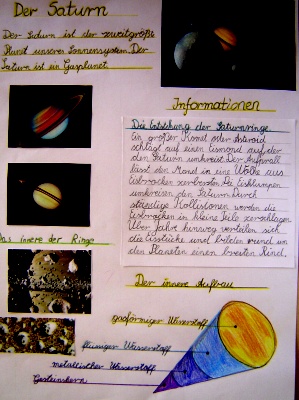 Der Saturn
Der Saturn ist der zweitgrößte
Planet unseres Sonnensystem. Der
Saturn ist ein Gasplanet.
Informationen
Die Entstehung der Saturnringe
Ein großer Komet oder Asteroid
schlägt auf einen Eismond auf der
den Saturn umkreist. Der Aufprall
lässt den Mond in eine Wolke aus
Eisbrocken zerbersten. Die Eisklumpen
umkreisen den Saturn. Durch
ständige Kollisionen werden die
Eisbrocken in kleine Teile zerschlagen.
Über Jahre hinweg verteilen sich
die Eisstücke und bilden rund um
den Planeten einen breiten Ring.
Das innere der Ringe
Der innere Aufbau
gasförmiger Wasserstoff
flüssiger Wasserstoff
metallischer Wasserstoff
Gesteinskern